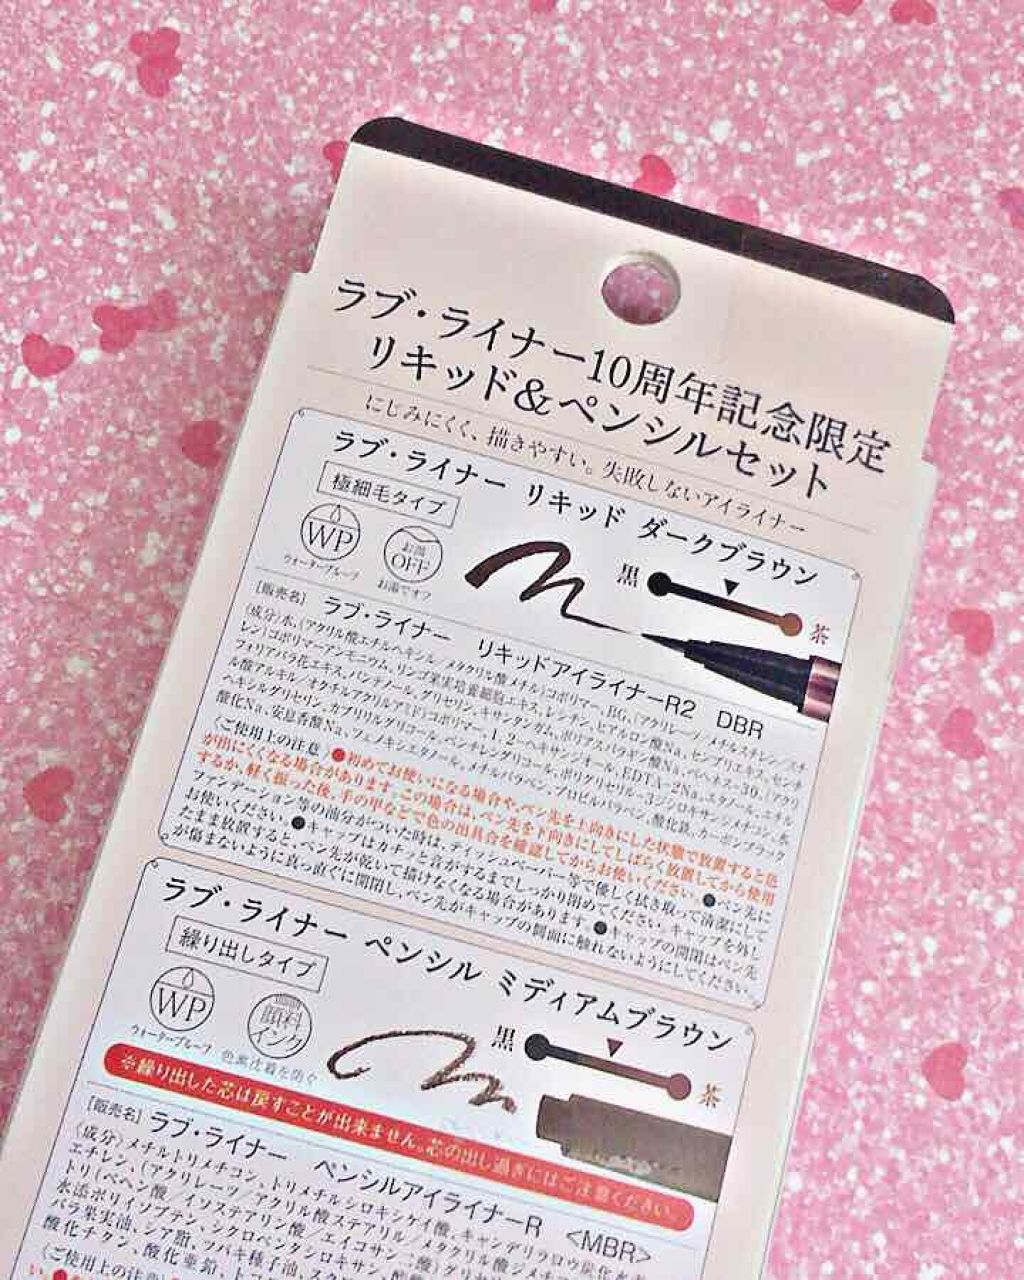 ラブ・ライナー10周年記念限定
リキッド&ペンシルセット
にじみにくく、描きやすい。失敗しないアイライナー
ラブ・ライナー リキッド ダークブラウン
極細毛タイプ
WP
ウォータープルーフ
お湯OFF
お湯でオフ
黒
茶
[販売名] ラブ・ライナー リキッドアイライナーR2 DBR
〈成分〉水、(アクリル酸エチルヘキシル/メタクリル酸メチル)コポリマー、BG、(アクリレーツ/メチルスチレン/スチ
レン)コポリマーアンモニウム、リンゴ果実培養細胞エキス、レシチン、ヒアルロン酸Na、センブリエキス、センチ
フォリアバラ花エキス、パンテノール、グリセリン、キサンタンガム、ポリアスパラギン酸Na、ベヘネス-30、(アクリ
ル酸アルキル/オクチルアクリルアミド)コポリマー、1,2-ヘキサンジオール、EDTA-2Na、エタノール、エチル
ヘキシルグリセリン、カプリリルグリコール、ペンチレングリコール、ポリグリセリル-3ジシロキサンジメチコン、水
酸化Na、安息香酸Na、フェノキシエタノール、メチルパラベン、プロピルパラベン、酸化鉄、カーボンブラック
〈ご使用上の注意〉●初めてお使いになる場合や、ペン先を上向きにした状態で放置すると色
が出にくくなる場合があります。この場合は、ペン先を下向きにしてしばらく放置してから使用
するか、軽く振った後、手の甲などで色の出具合を確認してからお使いください。●ペン先に
ファンデーション等の油分がついた時は、ティッシュペーパー等で優しく拭き取って清潔にして
お使いください。●キャップはカチッと音がするまでしっかり閉めてください。キャップを外し
たまま放置すると、ペン先が乾いて描けなくなる場合があります。●キャップの開閉はペン先
が傷まないように真っ直ぐに開閉し、ペン先がキャップの側面に触れないようにしてください。
ラブ・ライナー ペンシル ミディアムブラウン
繰り出しタイプ
WP
ウォータープルーフ
顔料インク
色素沈着を防ぐ
黒
茶
※繰り出した芯は戻すことが出来ません。芯の出し過ぎにはご注意ください。
[販売名] ラブ・ライナー ペンシルアイライナーR <MBR>
〈成分〉メチルトリメチコン、トリメチルシロキシケイ酸、キャンデリラロウ炭化水素
エチレン、(アクリレーツ/アクリル酸ステアリル/メタクリル酸ジメチコ
トリ(ベヘン酸/イソステアリン酸/エイコサン二酸)グリセ
水添ポリイソブテン、シクロペンタシロキサン
バラ果実油、シア脂、ツバキ種子油、スク
酸化チタン、酸化亜鉛、トコ
〈ご使用上の注意〉